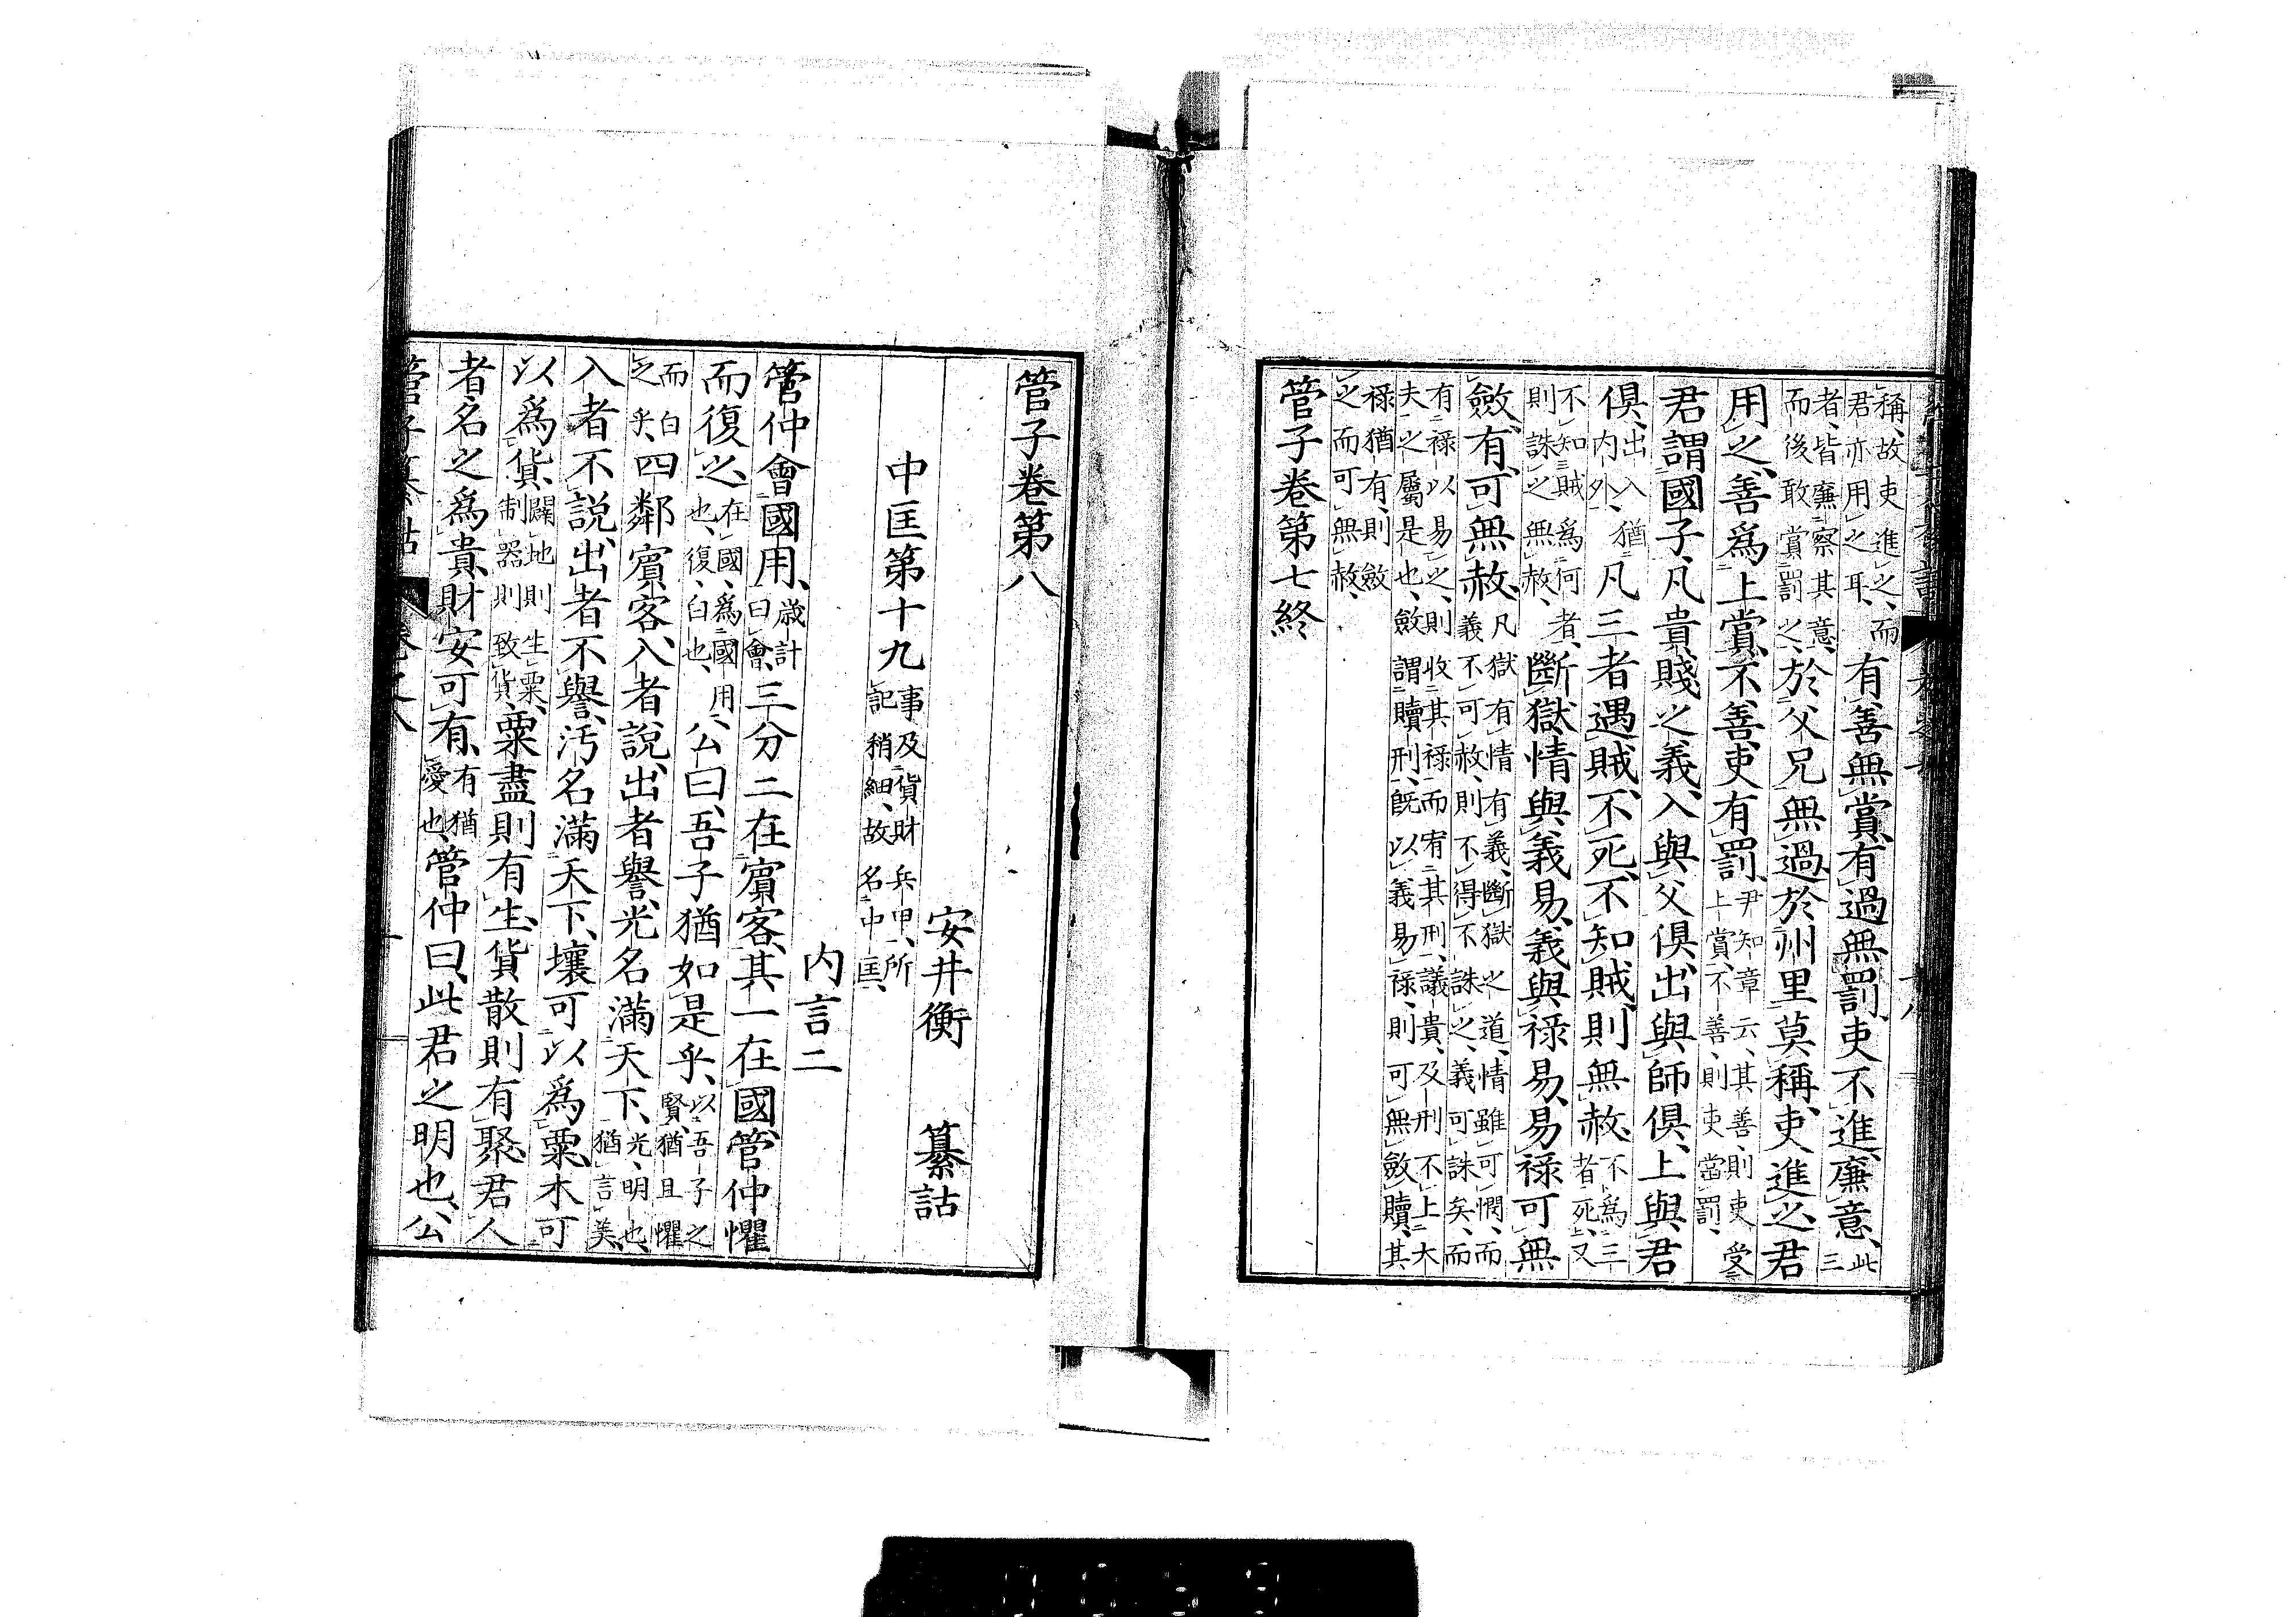 稱、故吏進之、而君亦用之耳、有善無賞、有過無罰、吏不進、廉意、此三
者、皆廉察其意、而後敢賞罰之、於父兄無過、於州里莫稱、吏進之、君
用之、善爲上賞、不善吏有罰、尹知章云、其善、則吏受上賞、不善、則吏當罰、
君謂國子、凡貴賤之義、入與父俱、出與師俱、上與君
俱、出入、猶内外、凡三者、遇賊不死、不知賊、則無赦、不爲三者死、又
不知賊爲何者、則誅之無赦、斷獄、情與義易、義與祿易、易祿可無
斂、有可無赦、凡獄有情有義、斷獄之道、情雖可憫、而義不可赦、則不得不誅之、義可誅矣、而
有祿以易之、則收其祿而宥其刑、議貴、及刑不上大夫之屬是也、斂謂贖刑、既以義易祿、則可無斂贖、其
祿猶有、則斂之而可無赦、
管子卷第七終
管子卷第八
安井衡 纂詁
中匡第十九 事及貨財兵甲、所記稍細、故名中匡、
内言二
管仲會國用、歳計曰會、三分二在賓客、其一在國、管仲懼
而復之、在國、爲國用也、復、白也、公曰、吾子猶如是乎、以吾子之賢、猶且懼
而白之乎、四鄰賓客、入者說、出者譽、光名滿天下、光、明也、猶言美、
入者不說、出者不譽、汚名滿天下、壤可以爲粟、木可
以爲貨、闢地則生粟、制器則致貨、粟盡則有生、貨散則有聚、君人
者、名之爲貴、財安可有、有猶愛也、管仲曰、此君之明也、公
管子纂詁 卷之八 一